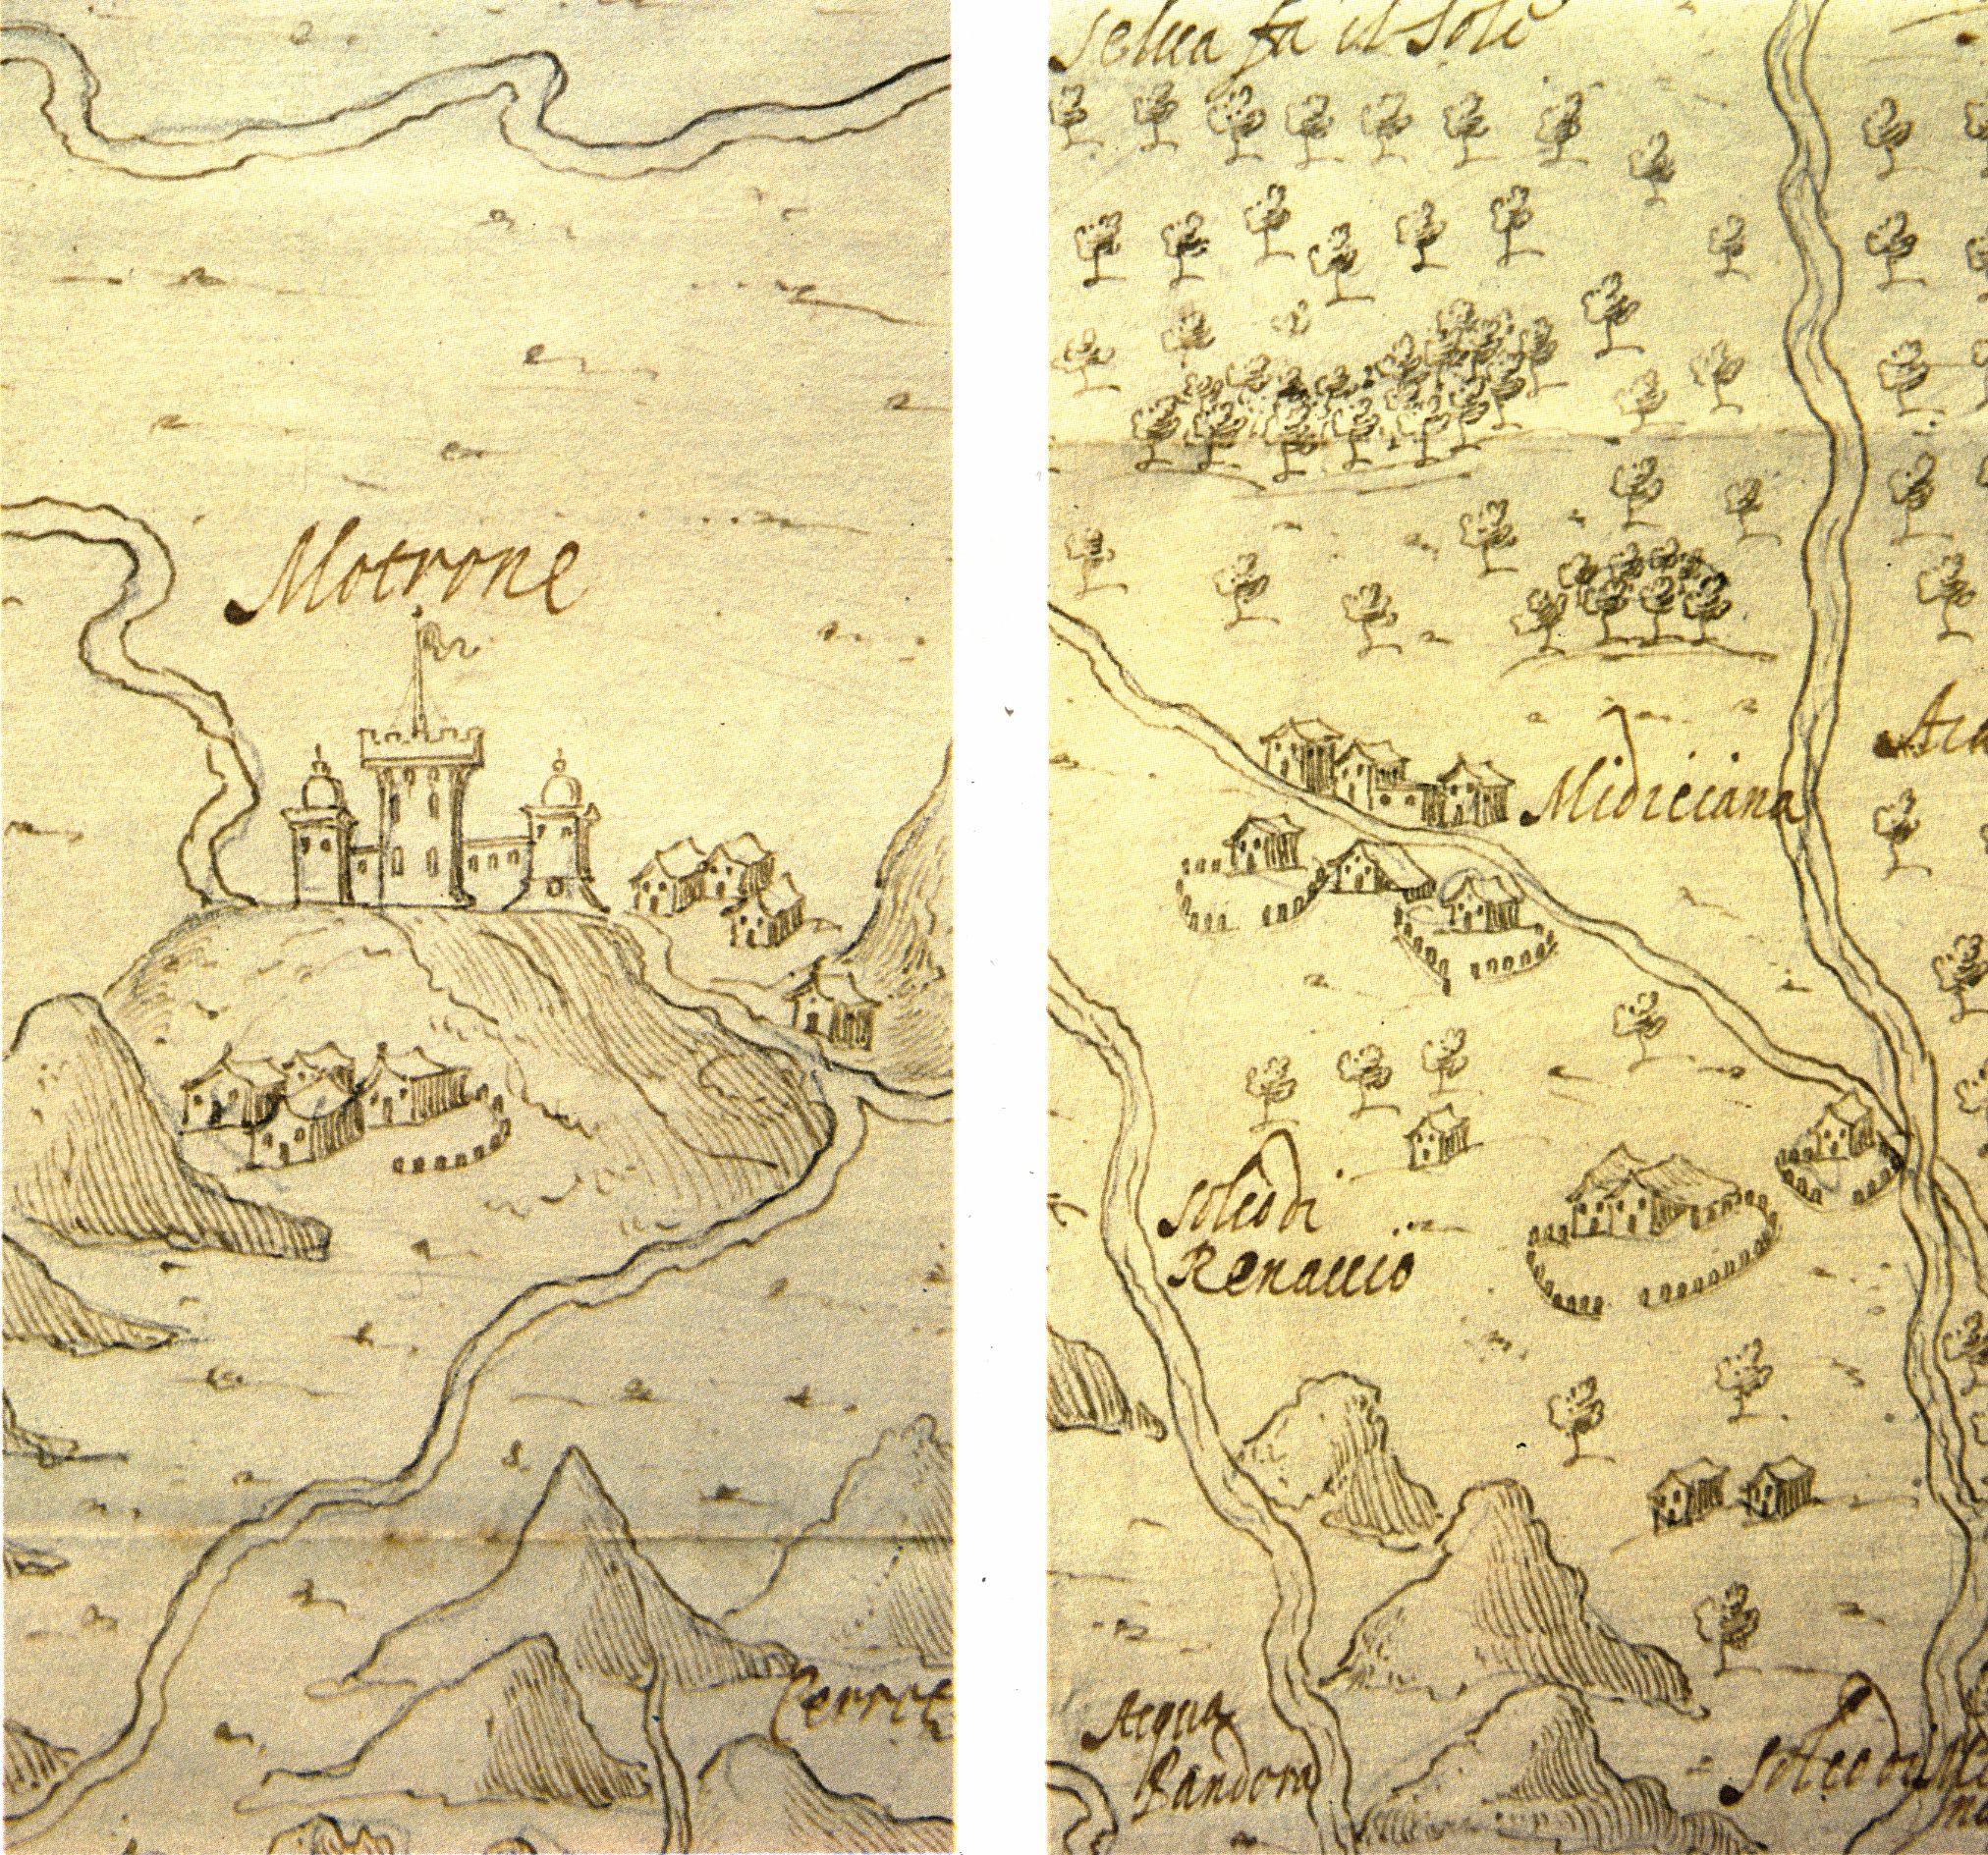 Motrone
Cerret
Selua fa il Soli
Midiciana
Soleo di
Renaccio
Acqua
Bandora